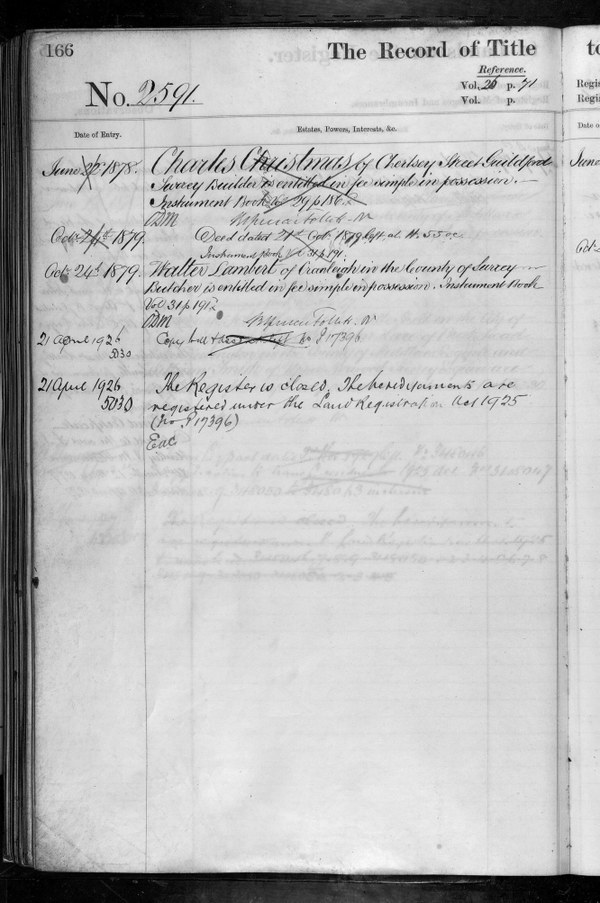 166
The Record of Title
Reference.
Vol. 26 p. 71
Vol. p.
No. 2591.
Date of Entry.
Estates, Powers, Interests, &c.
June 1878. Charles Christmas of Chertsey Street Guildford
Surrey Builder is entitled in fee simple in possession.
Instrument Book 29 p 186.
Octr 24th 1879. Deed dated 21st Octr 1879 left at
Instrument Book Vol 31 p 191.
Octr 24th 1879. Walter Lambert of Cranleigh in the County of Surrey
Butcher is entitled in fee simple in possession. Instrument Book
Vol 31 p 191.
21 April 1926
5030
Copy P 17396
21 April 1926
5030
The Register is closed. The hereditaments are
registered under the Land Registration Act 1925
(No. P 17396)
to
Regis
Regis
Date o
June